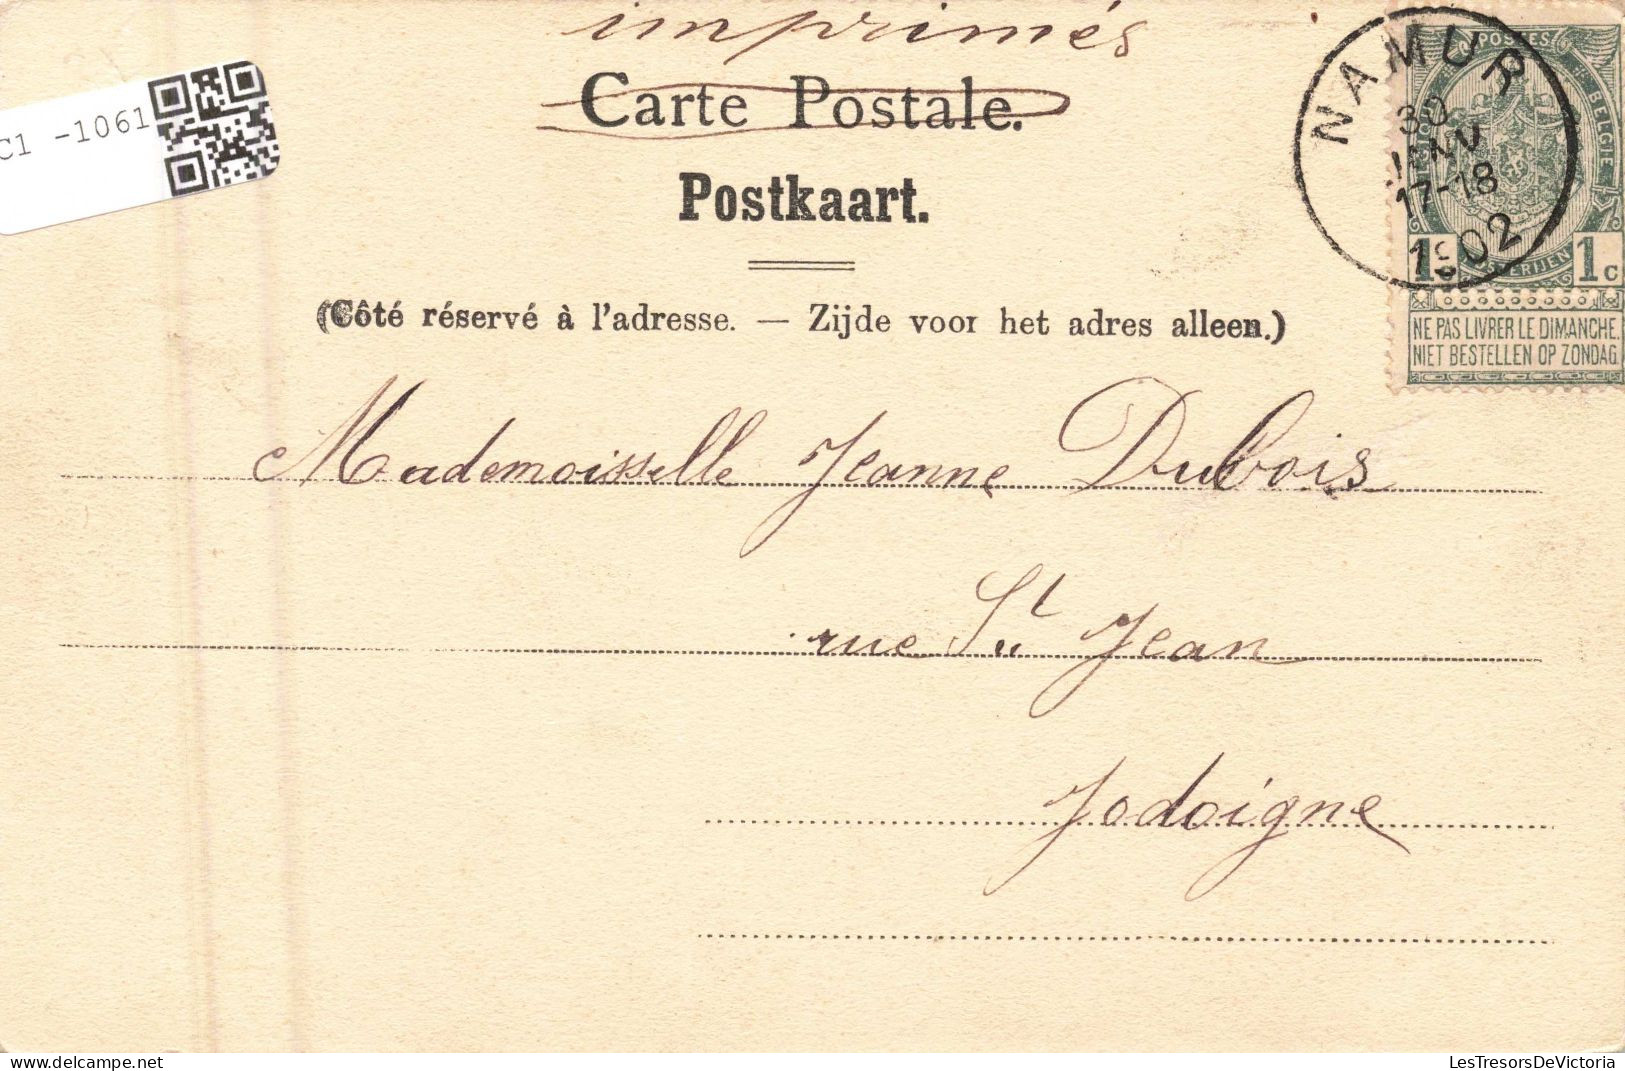 imprimés
Carte Postale.
Postkaart.
(Côté réservé à l'adresse. — Zijde voor het adres alleen.)
C1 -1061
NAMUR
30
JANV
17-18
1902
POSTES
BELGIQUE
BELGIE
POSTERIJEN
1c 1c
NE PAS LIVRER LE DIMANCHE.
NIET BESTELLEN OP ZONDAG.
Mademoiselle Jeanne Dubois
rue St Jean
Jodoigne
LesTresorsDeVictoria